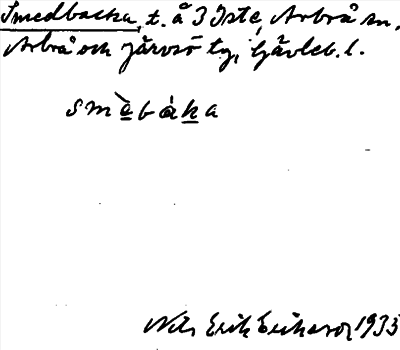 Smedbacka, t. å 3 Iste, Arbrå sn,
Arbrå och Järvsö tg, Gävleb. l.
smèbáka
Nils Erik Eriksson 1935